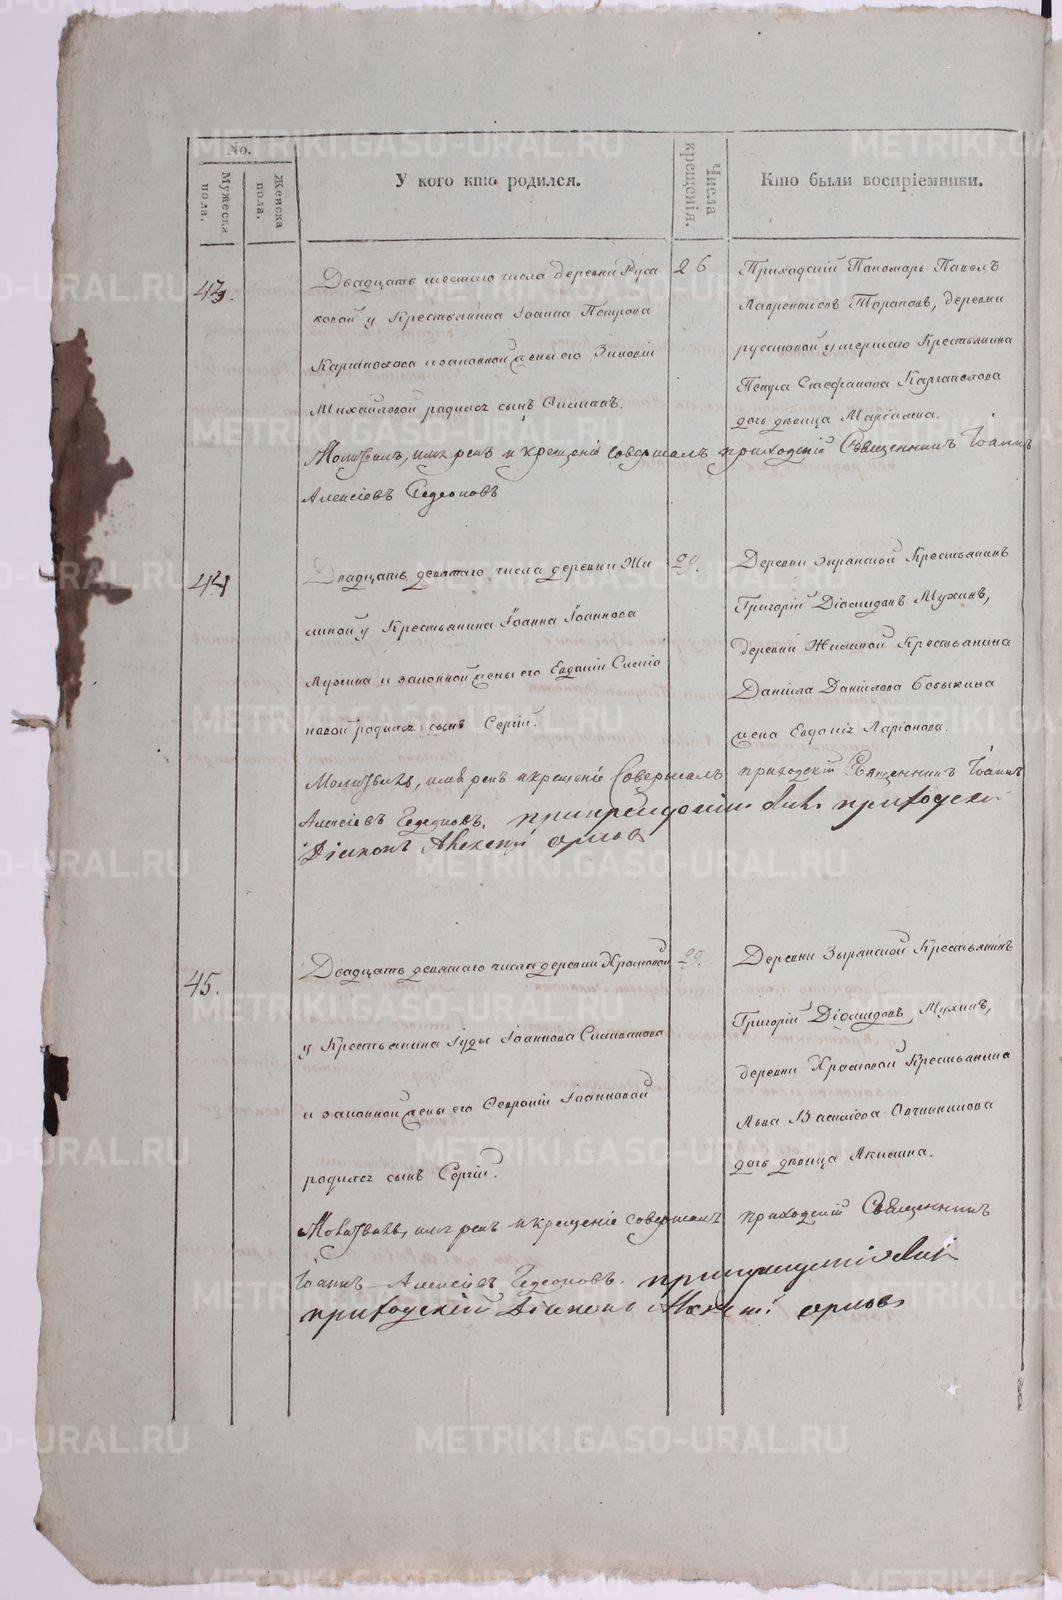 No.
Мужеска пола.
Женска пола.
У кого кто родился.
Числа крещенія.
Кто были воспріемники.
43.
Двадцать шестаго числа деревни Руса
ковой у Крестьянина Іоанна Петрова
Каргаполова и законной жены его Зиновіи
Михайловой родился сынъ
26
Приходскій Пономарь Павелъ
Лаврентіевъ Тарапов, деревни
русаковой умершаго Крестьянина
Петра Стефанова Каргаполова
дочь девица
Молитвилъ, имя рекъ и крещеніе совершалъ приходскій Священникъ Іоаннъ
Алексіевъ Гедеоновъ
44
Двадцать девятаго числа деревни Жи
линой у Крестьянина Іоанна Іоаннова
Мухина и законной жены его Евдокіи
новой родился сынъ Сергій.
29.
Деревни Зырянской Крестьянинъ
Григорій Діомидовъ Мухинъ,
деревни Жилиной Крестьянина
Даніила Даніилова Бабыкина
жена Евдокія Ларіонова.
Молитвилъ, имя рекъ и крещеніе Совершалъ приходскій Священникъ Іоаннъ
Алексіевъ Гедеоновъ, при крещеніи былъ приходскій
Діаконъ Алексей Орлов
45.
Двадцать девятаго числа деревни Храмовой
у Крестьянина Іуды Іоаннова Силиванова
и законной жены его Февроніи Іоанновой
родился сынъ Сергій.
29.
Деревни Зырянской Крестьянинъ
Григорій Діомидовъ Мухинъ,
деревни Храмовой Крестьянина
Льва Василіева Овчинникова
дочь девица Акилина.
Молитвилъ, имя рекъ и крещеніе совершалъ приходскій Священникъ
Іоаннъ Алексіевъ Гедеоновъ.
приходскій Діаконъ Алексей Орловъ
METRIKI.GASO-URAL.RU